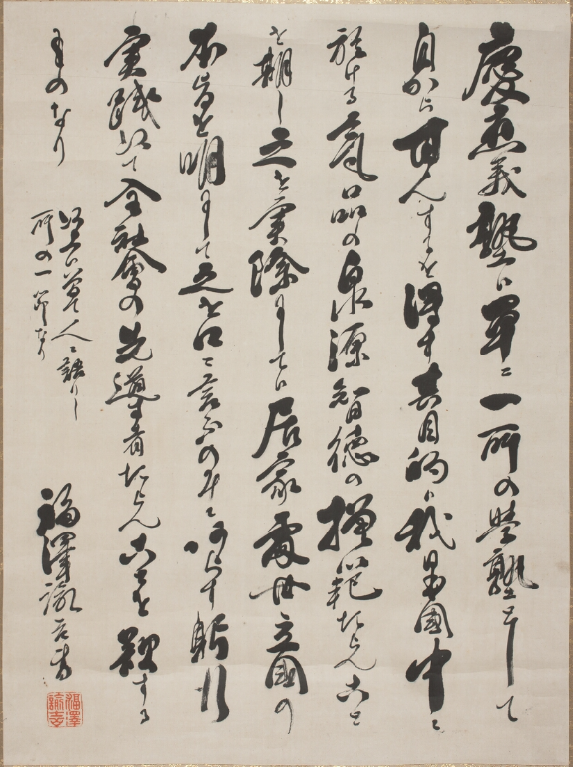 慶應義塾ハ單ニ一所の學塾として
自から甘んするを得す其目的ハ我日本國中ニ
於ける氣品の泉源智徳の模範たらんこと
を期し之を實際にしてハ居家處世立國の
本旨を明にして之を口ニ言ふのみニあらす躬行
実践以て全社會の先導者たらんことを欲する
ものなり
以上ハ曽て人ニ語りし
所の一節なり
福澤諭吉書
福澤
諭吉